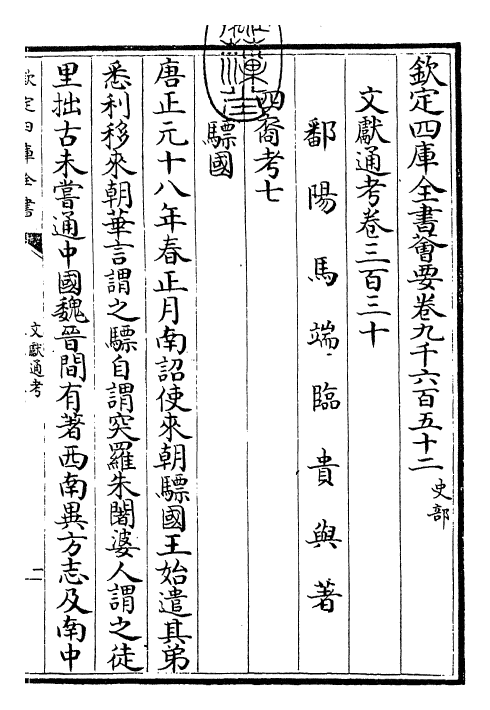 欽定四庫全書薈要卷九千六百五十二 史部
文獻通考卷三百三十
鄱陽馬端臨貴與著
四裔考七
驃國
唐正元十八年春正月南詔使來朝驃國王始遣其弟
悉利移來朝華言謂之驃自謂突羅朱闍婆人謂之徒
里拙古未嘗通中國魏晉間有著西南異方志及南中
欽定四庫全書
文獻通考
二